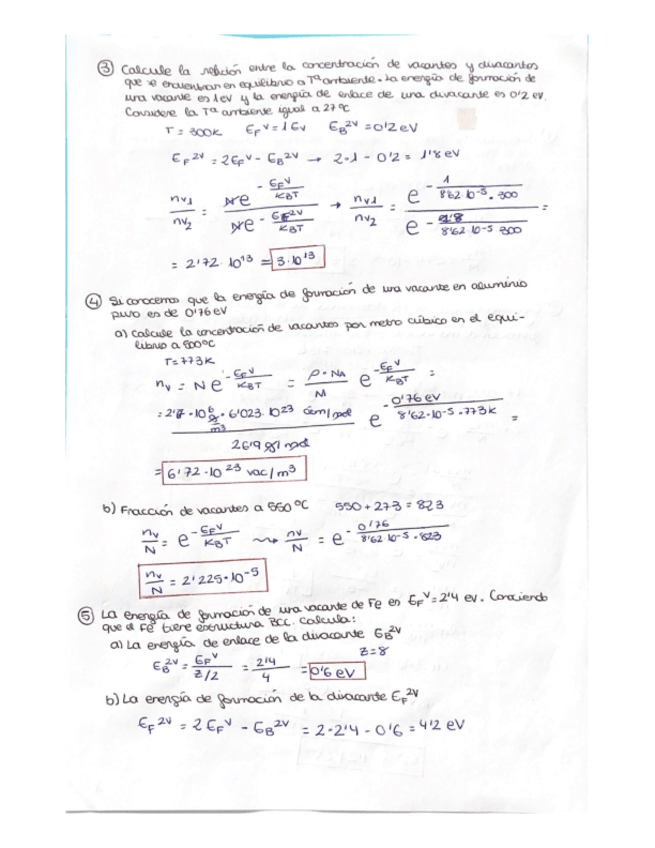 ③ Calcule la relación entre la concentración de vacantes y divacantes
que se encuentran en equilibrio a Tª ambiente. La energía de formación de
una vacante es 1eV y la energía de enlace de una divacante es 0'2 eV.
Considere la Tª ambiente igual a 27ºC
T = 300K   E_F^V = 1Ev   E_B^2V = 0'2eV
E_F^2V = 2E_F^V - E_B^2V → 2·1 - 0'2 = 1'8 eV
nv1/nv2 = Ne^(-E_F^V/K_BT) / Ne^(-E_F^2V/K_BT) → nv1/nv2 = e^(-1/(8'62·10^-5·300)) / e^(-1'8/(8'62·10^-5·300)) =
= 2'72·10^13 = 3·10^13
④ Si conocemos que la energía de formación de una vacante en aluminio
puro es de 0'76 eV
a) Calcule la concentración de vacantes por metro cúbico en el equi-
librio a 500ºC
T = 773K
n_v = N e^(-E_F^V/K_BT) = ρ·N_A/M e^(-E_F^V/K_BT) =
= 2'7·10^6 g/m³ · 6'023·10^23 átm/mol / 26'9 g/mol e^(-0'76 eV/(8'62·10^-5·773K)) =
= 6'72·10^23 vac/m³
b) Fracción de vacantes a 550ºC   550 + 273 = 823
n_v/N = e^(-E_F^V/K_BT) ⇝ n_v/N = e^(-0'76/(8'62·10^-5·823))
n_v/N = 2'225·10^-5
⑤ La energía de formación de una vacante de Fe es E_F^V = 2'4 eV. Conociendo
que el Fe tiene estructura BCC. Calcula:
a) La energía de enlace de la divacante E_B^2V
Z = 8
E_B^2V = E_F^V/(Z/2) = 2'4/4 = 0'6 eV
b) La energía de formación de la divacante E_F^2V
E_F^2V = 2E_F^V - E_B^2V = 2·2'4 - 0'6 = 4'2 eV